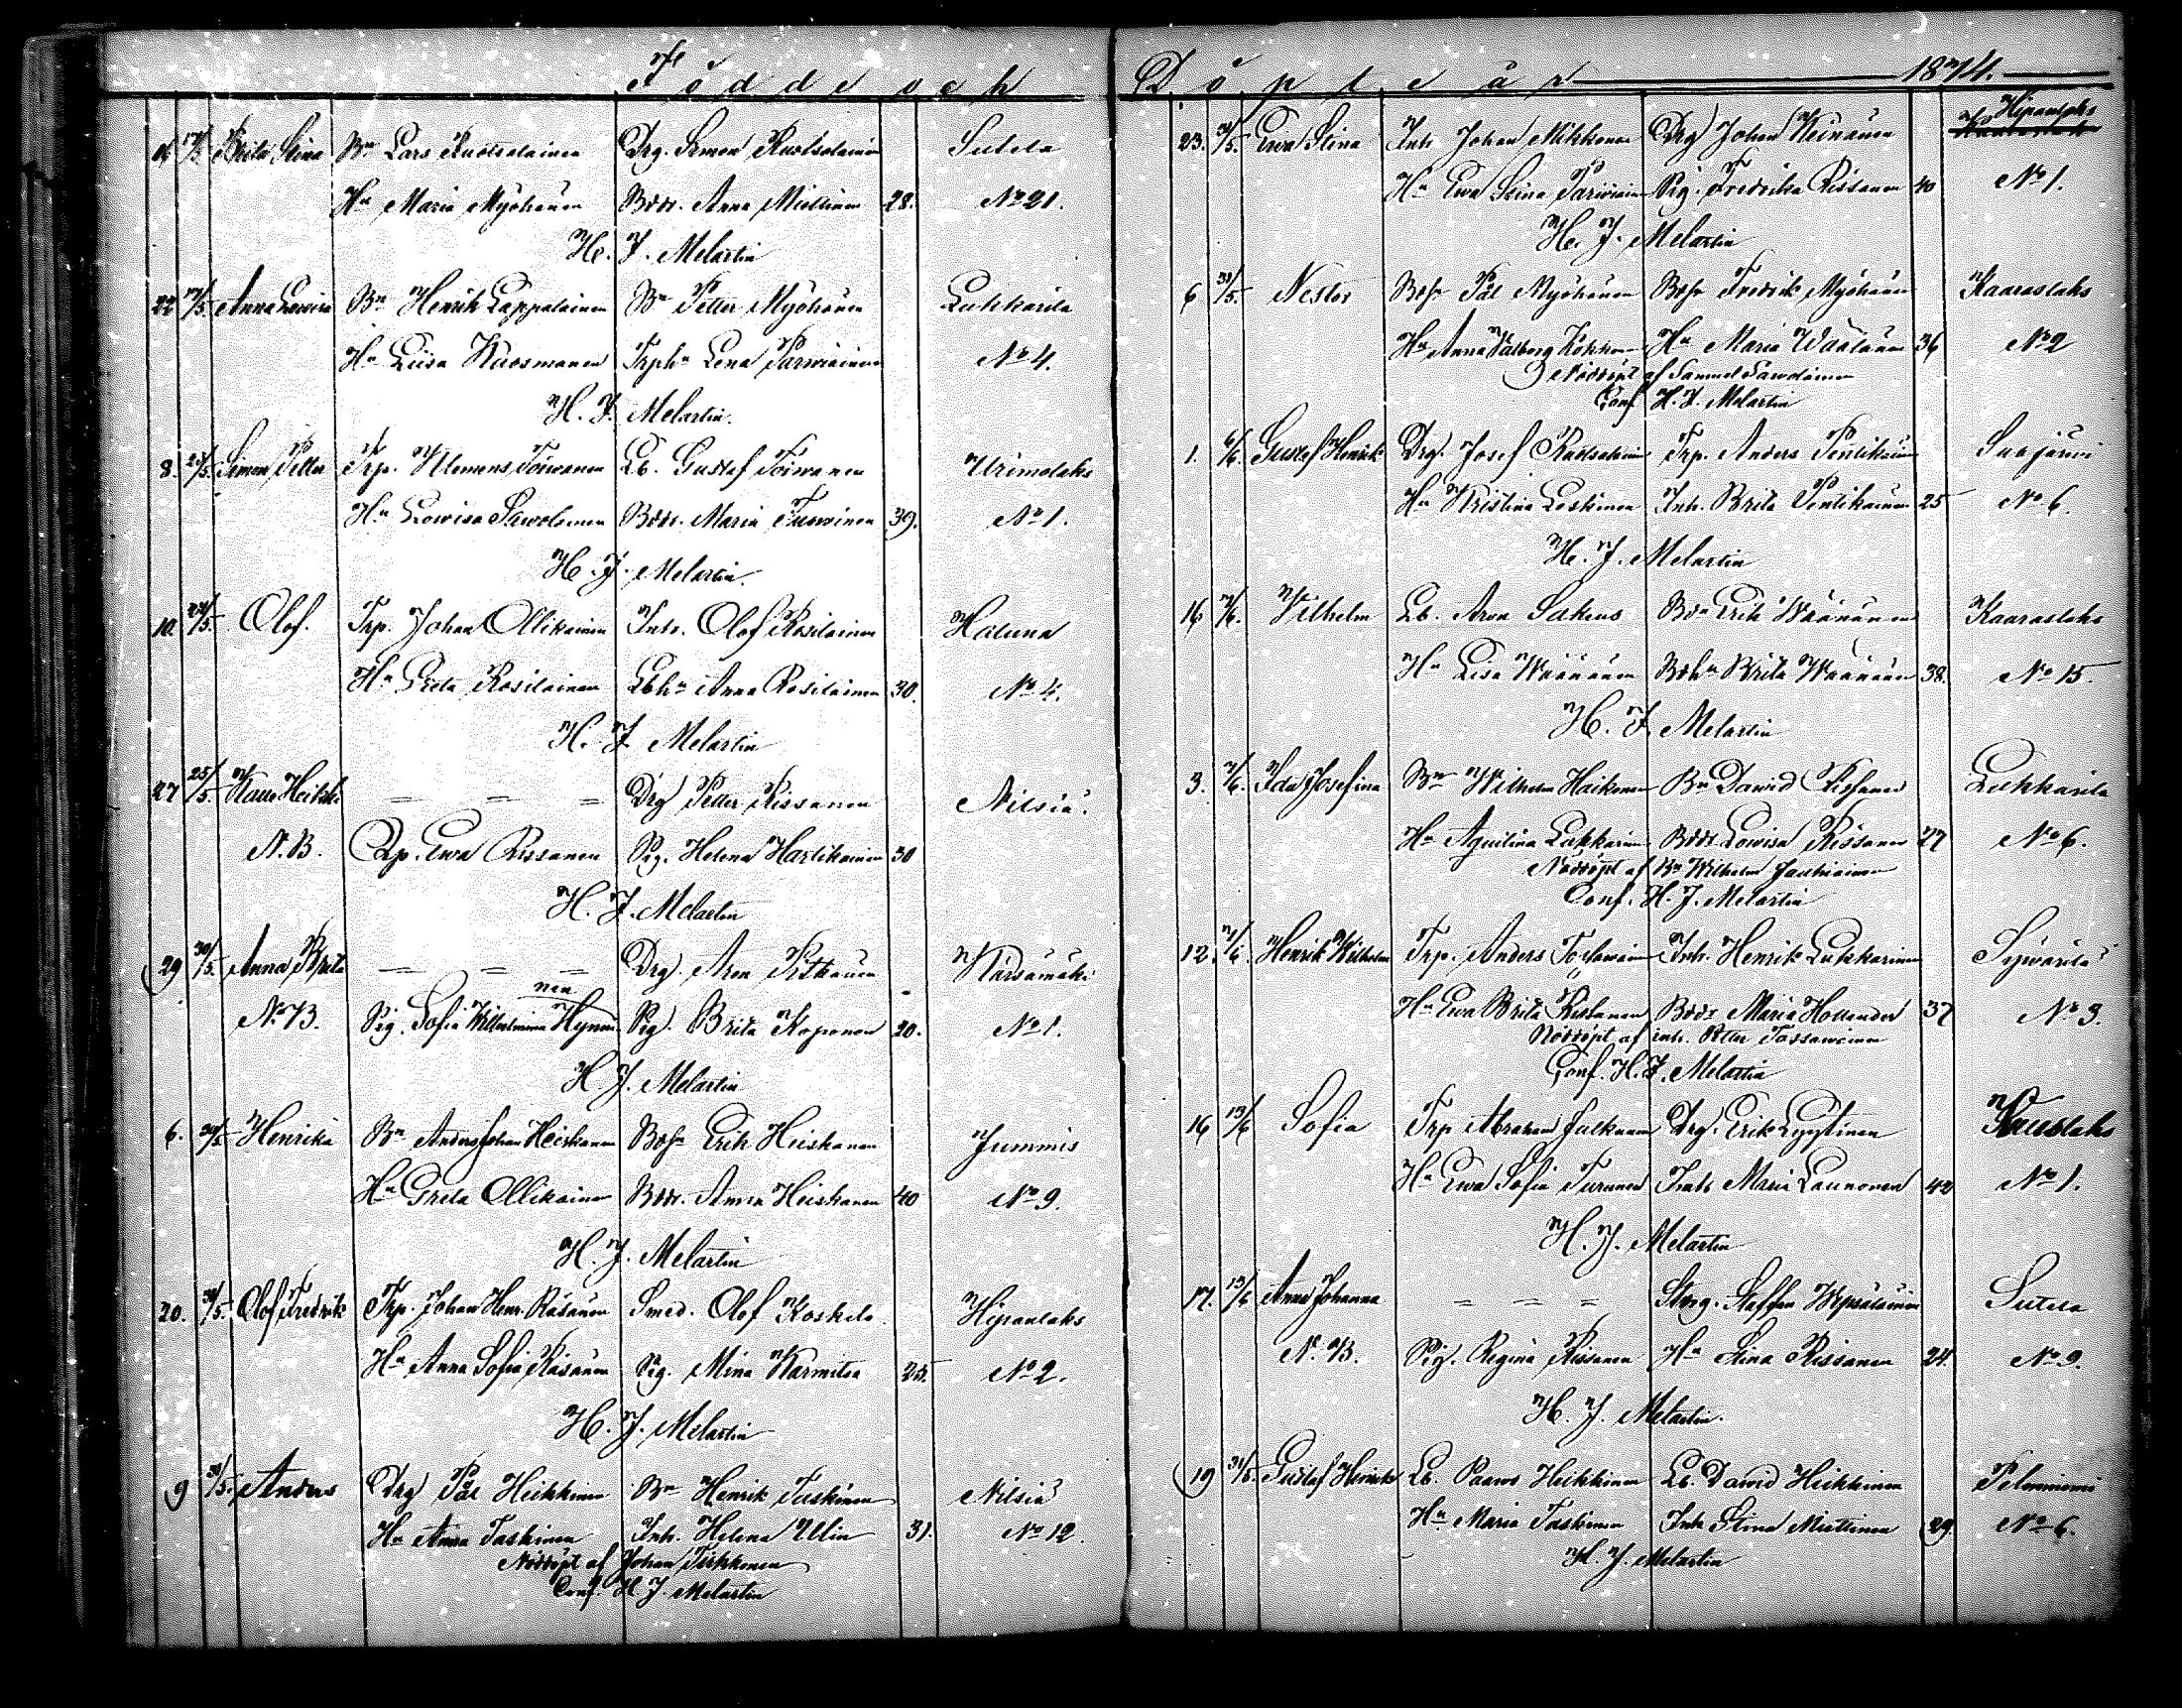 Födde och
Brita Stina Bn Lars Ruotsalainen Drg. Simon Ruotsalainen Sutela
Hu Maria Myöhänen Bodr. Anna Miettinen 28. No 21.
H. J. Melartin
22 Anna Lovisa Bn Henrik Lappalainen Bn Petter Myöhänen Lukkarila
Hu Liisa Kuosmanen Trphu Lena Parviainen No 4.
H. J. Melartin.
8. Simon Petter Trp. Klemens Toivanen Lb. Gustaf Toivanen Urimolaks
Hu Lowisa Sawolainen Bodr. Maria 39. No 1.
H. J. Melartin.
10. Olof. Trp. Johan Ollikainen Inh. Olof Rosilainen Haluna
Hu Greta Rosilainen Lbhu Anna Rosilainen 30. No 4.
H. J. Melartin
27 25/5. Heikki — — — Drg Petter Rissanen Nilsiä.
N.B. Ewa Rissanen Pig. Helena Hartikainen 30
H. J. Melartin
29 30/5. Anna Brita — — — Drg. Aron Pitkänen Kärsämäki
nen
N.B. Pig. Sofia Wilhelmina Hynni Pig. Brita Koponen 20. No 1.
H. J. Melartin
6. Henrika Bn Anders Johan Heiskanen Bosn Erik Heiskanen Jummis
Hu Greta Ollikainen Bodr. Anna Heiskanen 40 No 9.
H. J. Melartin
20. Olof Fredrik Trp. Johan Henr. Räsänen Smed. Olof Koskelo Hipanlaks
Hu Anna Sofia Räsänen Pig. Mina Karmitsa 25. No 2.
H. J. Melartin
9 31/5. Anders Drg Pål Heikkinen Bn Henrik Taskinen Nilsiä
Hu Anna Taskinen Inh. Helena Ulin 31. No 12.
Nöddöpt af Johan Tirkkonen
Conf. H J. Melartin
Döpte år 1874.
Hipanlaks
23. 31/5. Ewa Stina Inh Johan Mikkonen Drg Johan Keinänen
Hu Ewa Stina Parviain Pig. Fredrika Rissanen 40 No 1.
H. J. Melartin
6 31/5. Nestor Bosn Pål Myöhänen Bosn Fredrik Myöhänen Kaaraslaks
Hu Anna Walborg Kokkonen Hu Maria Väätäinen 36 No 2
Nöddöpt af Samuel Sawolainen
Conf H. J. Melartin
1. 6/6. Gustaf Henrik Drg. Josef Ruotsalain Trp. Anders Pentikäinen Suojärvi
Hu Kristina Leskinen Inh. Brita Pentikäinen 25 No 6.
H. J. Melartin
16. 7/6. Vilhelm Lb. Aron Sakeus Bon Erik Väänänen Kaaraslaks
Hu Lisa Väänänen Bohu Brita Väänänen 38. No 15.
H. J. Melartin
3. 7/6. Ida Josefina Bn Wilhelm Haikonen Bn Dawid Rissanen Lukkarila
Hu Aqvilina Lukkarinen Bodr Lowisa Rissanen 27 No 6.
Nöddöpt af Bn Wilhelm Jauhiainen
Conf. H. J. Melartin
12. 7/6. Henrik Wilhelm Trp. Anders Inh. Henrik Lukkarinen Sywärilä
Hu Ewa Brita Rissanen Bodr Maria Hollander 37 No 3.
Nöddöpt af inh. Petter Tossawainen
Conf. H. J. Melartin
16 13/6 Sofia Trp Abraham Julkunen Drg. Erik Lyytinen
Hu Ewa Sofia Turunen Inh Maria Launonen 42 No 1.
H. J. Melartin
17. 13/6 Anna Johanna — — — Staffan Sutela
N.B. Pig. Regina Rissanen Hu Stina Rissanen 24. No 9.
H. J. Melartin.
19 31/5. Gustaf Henrik Lb. Paavo Heikkinen Lb. Dawid Heikkinen
Hu Maria Taskinen Inh Stina Miettinen 29. No 6.
H. J. Melartin